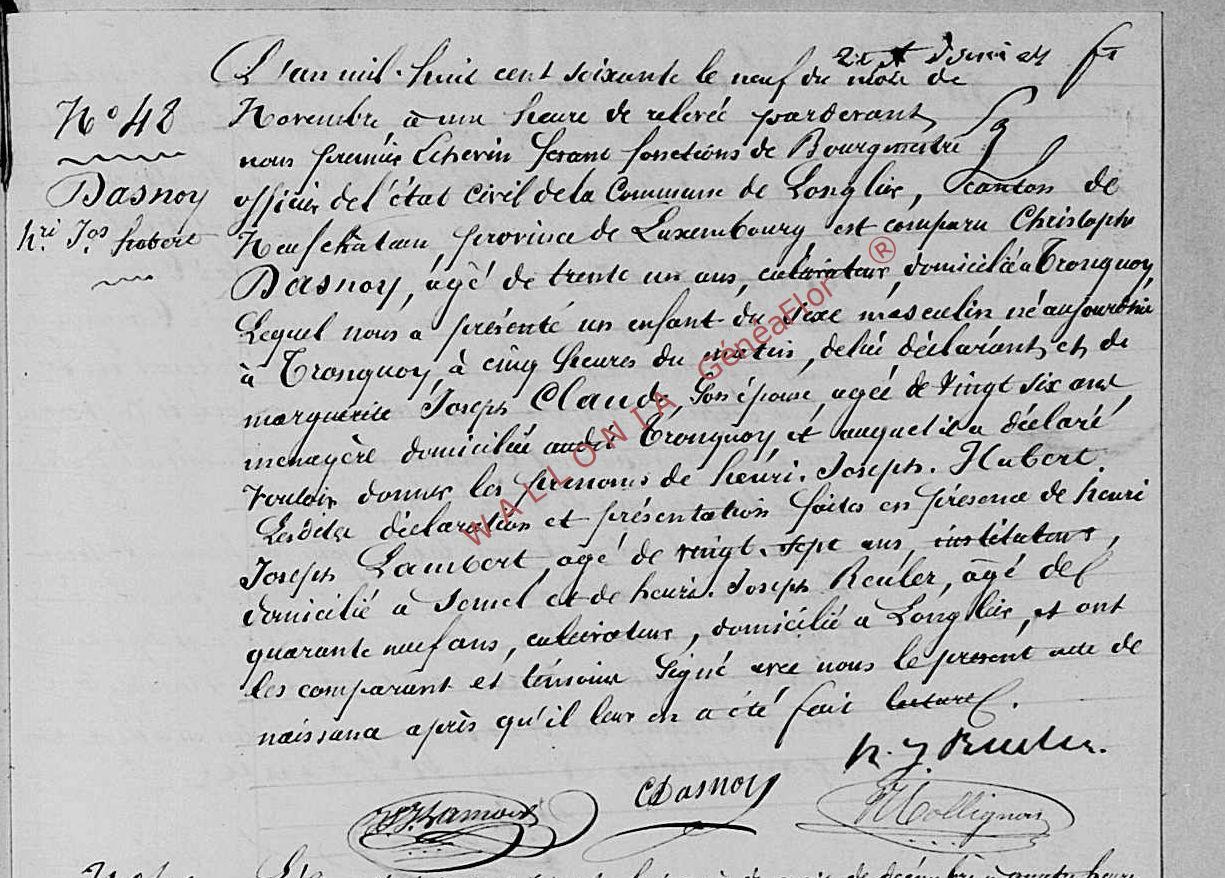 L'an mil huit cent soixante le neuf du mois de
N° 48
Novembre à une heure de relevée pardevant
nous premier Echevin ferant fonctions de Bourgmestre
Dasnoy
officier de l'état Civil de la Commune de Longlier, canton de
hri Jos hubert
Neufchateau, province de Luxembourg est comparu Christophe
Dasnoy, âgé de trente un ans, cultivateur, domicilié à Tronquoy,
Lequel nous a présenté un enfant du sexe masculin né aujourd'hui
à Tronquoy, à cinq heures du matin, de lui déclarant, et de
marguerite Joseph Claude, son épouse, agée de vingt six ans,
menagère domiciliée audit Tronquoy et auquel il a déclaré
vouloir donner les prenoms de henri. Joseph. Hubert.
Lesdites déclaration et présentation faites en présence de henri
Joseph Lambert, agé de vingt-sept ans, instituteur,
domicilié à Semel et de henri. Joseph Reuler, âgé de
quarante neuf ans, cultivateur, domicilié à Longlier, et ont
les comparant et témoins signé avec nous le présent acte de
naissance après qu'il leur en a été fait lecture.
h. J Reuler.
CDasnoy
HJLambert
Collignon
WALLONIA GéneaFlor ®